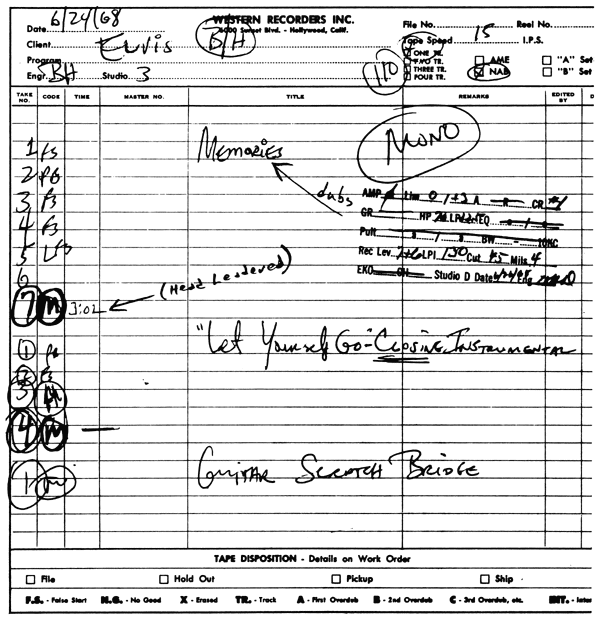 Date 6/24/68 WESTERN RECORDERS INC. File No. Reel No.
6000 Sunset Blvd. - Hollywood, Calif.
Client Elvis B/H Tape Speed 15 I.P.S.
Program ONE TR. AME "A" Set
TWO TR.
Engr. BH Studio 3 110 THREE TR. NAB "B" Set
FOUR TR.
TAKE NO. CODE TIME MASTER NO. TITLE REMARKS EDITED BY D
MONO
1 FS MEMORIES
2 PB
dubs
3 FS AMP Lim 0 /+2 A R CR
4 FS GR HP LP EQ
Pult 0 / 0 BW - 10KC
5 LFS Rec Lev. LPI 130 Cut Mils 4
6 (Head Leadered) EKO CH Studio D Date Eng
7 M 3:02
"Let Yourself Go"-CLOSING INSTRUMENTAL
1 PB
2 FS
3
4 M —
1 GUITAR SCRATCH BRIDGE
TAPE DISPOSITION - Details on Work Order
File Hold Out Pickup Ship
F.S. - False Start N.G. - No Good X - Erased TR. - Track A - First Overdub B - 2nd Overdub C - 3rd Overdub, etc. INT. - Inter